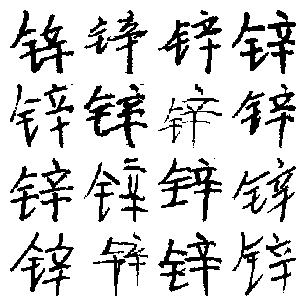 锌 锌 锌 锌
锌 锌 锌 锌
锌 锌 锌 锌
锌 锌 锌 锌